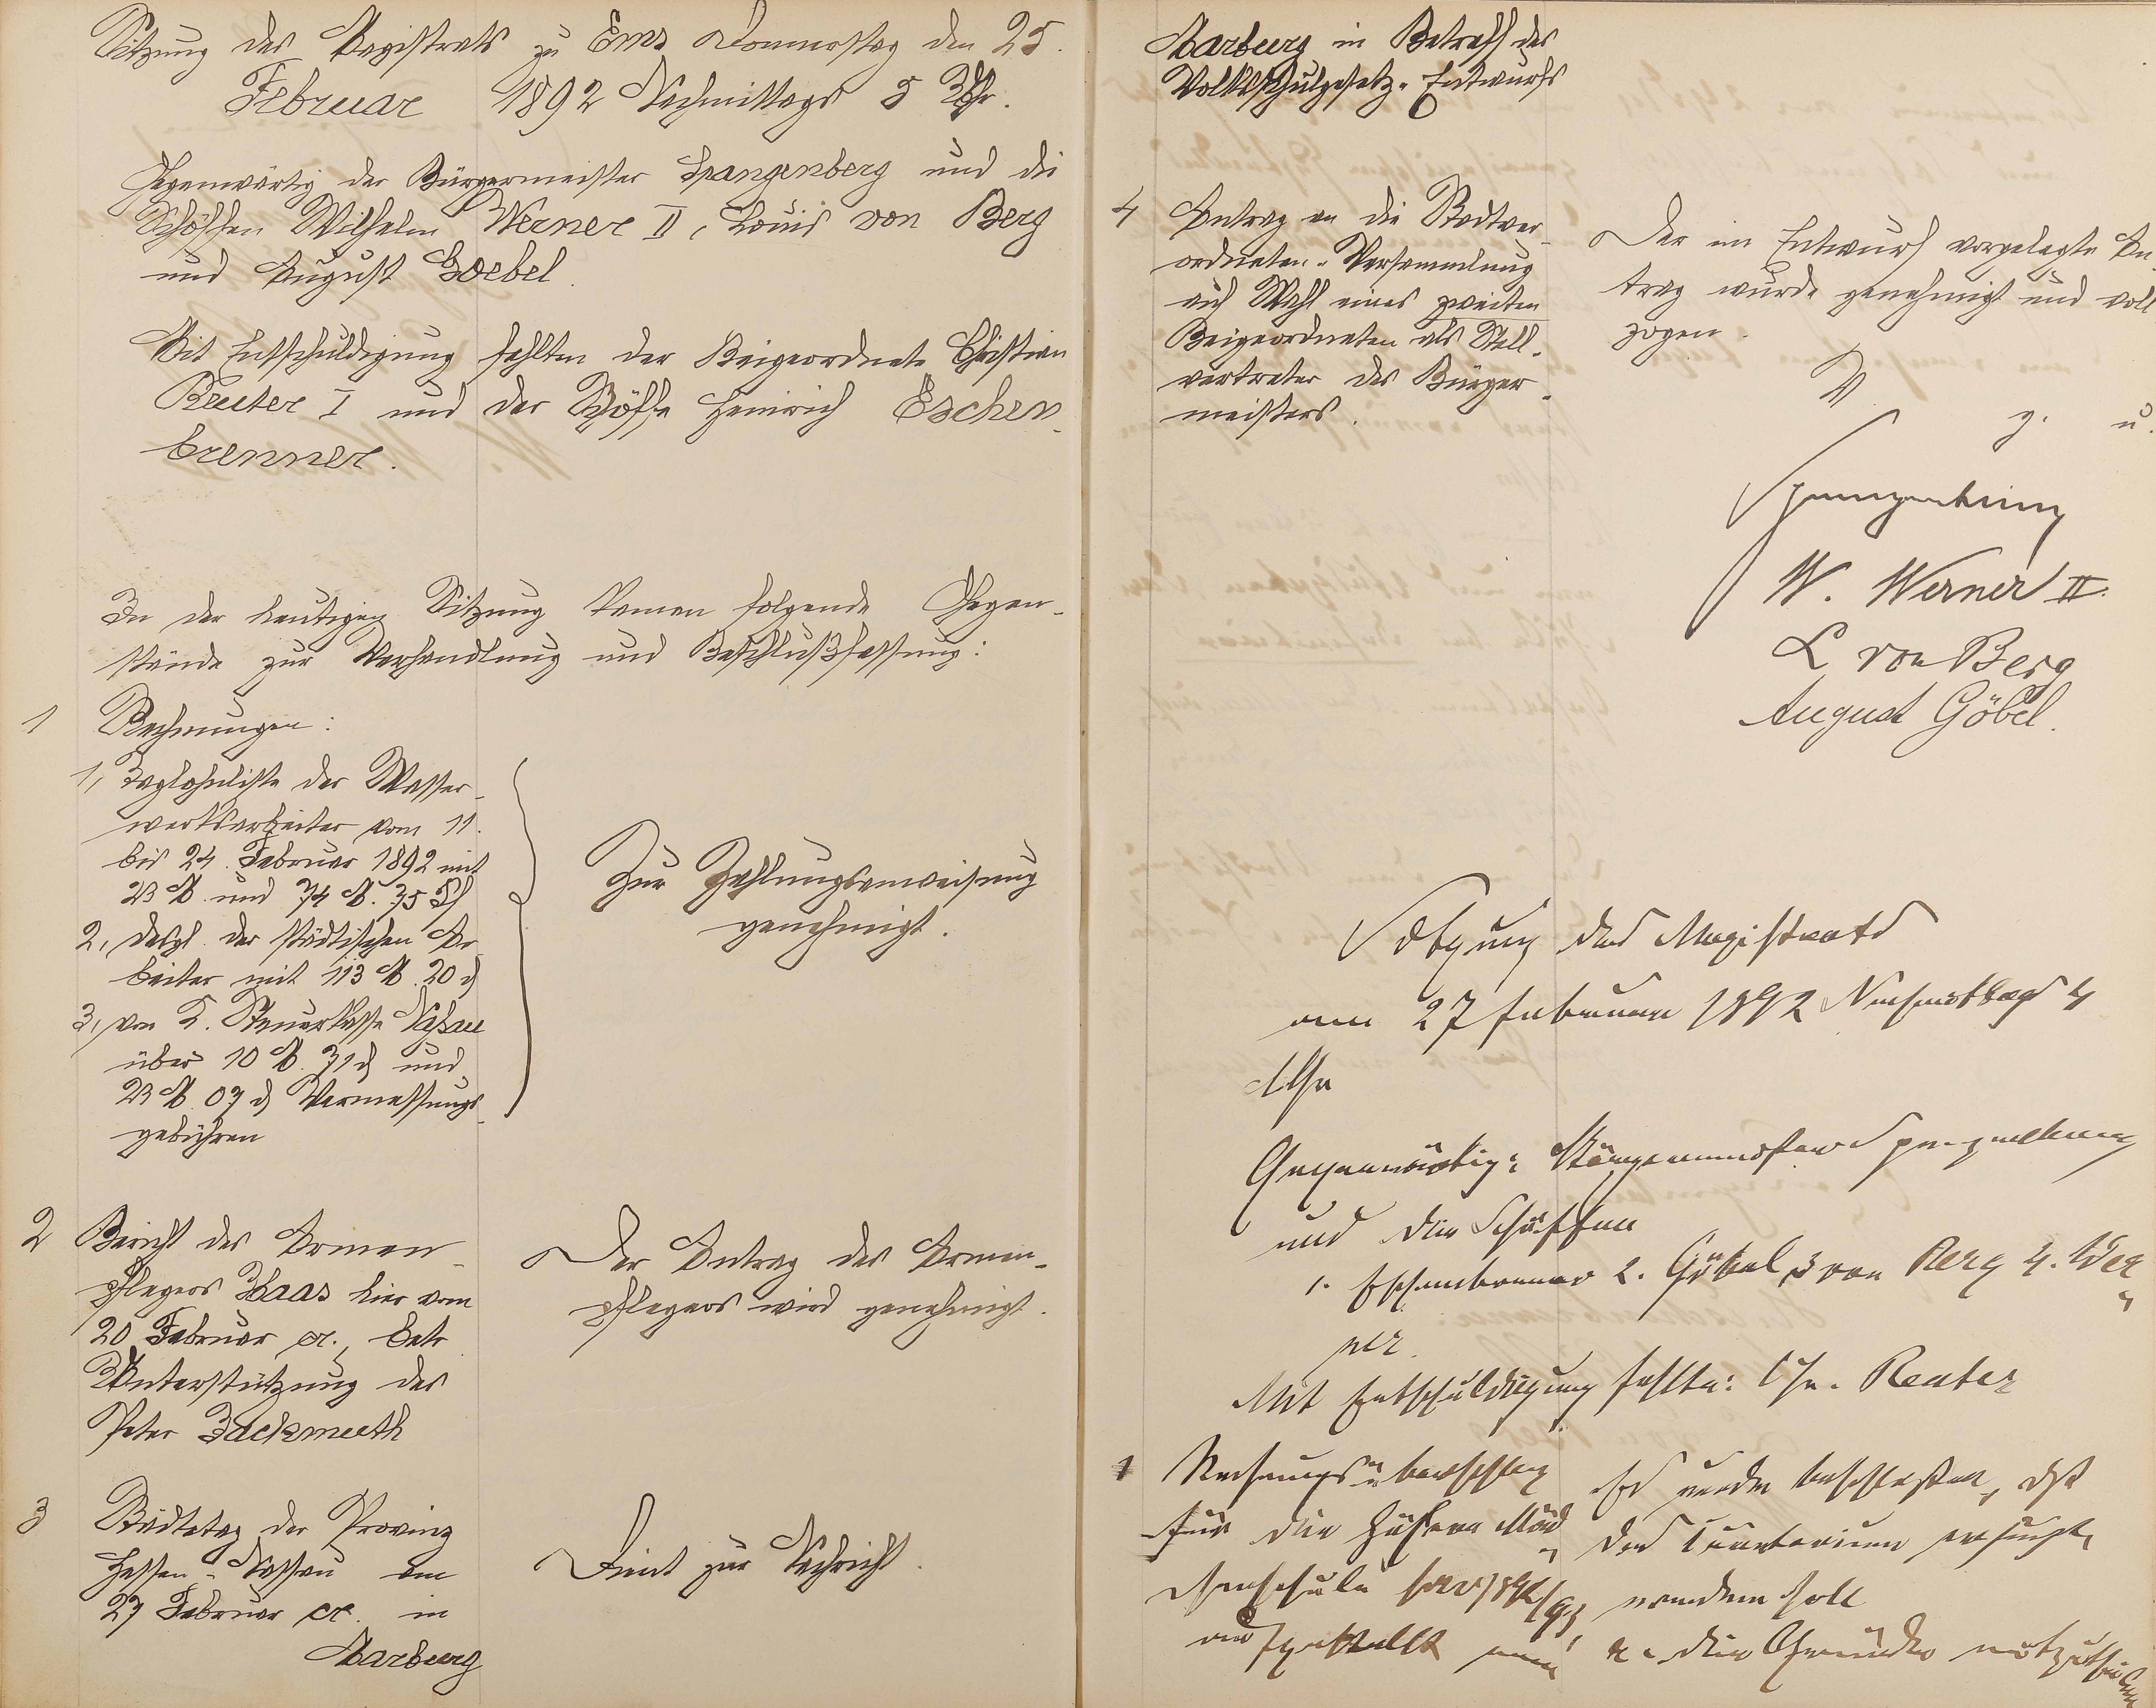 Sitzung des Magistrats zu Ems Donnerstag den 25.
Februar 1892 Nachmittags 5 Uhr.
Gegenwärtig der Bürgermeister Spangenberg und die
Schöffen Wilhelm Werner II, Louis von Berg
und August Goebel.
Mit Entschuldigung fehlten der Beigeordnete Christian
Reuter I und der Schöffe Heinrich Eschen-
brenner.
In der heutigen Sitzung kamen folgende Gegen-
stände zur Verhandlung und Beschlußfassung:
1 Rechnungen:
1, Taglohnliste der Wasser-
werksarbeiter vom 11.
bis 24. Februar 1892 mit
23 M. und 74 M. 75 Pf
2, desgl. der städtischen Ar-
beiter mit 113 M. 20 d
3, von K. Steuerkasse Naßau
über 10 M. 71 d und
23 M. 07 d Vermessungs-
gebühren
Zur Zahlungsanweisung
genehmigt.
2 Bericht des Armen-
pflegers Haas hier vom
20 Februar cr., betr
Unterstützung des
Peter Zackmuth
Der Antrag des Armen-
pflegers wird genehmigt.
3 Städtetag der Provinz
Hessen-Nassau am
27 Februar cr. in
Marburg
Dient zur Nachricht.
Marburg in Betreff des
Volksschulgesetz-Entwurfs
4 Antrag an die Stadtver-
ordneten-Versammlung
auf Wahl eines zweiten
Beigeordneten als Stell-
vertreter des Bürger-
meisters.
Der im Entwurf vorgelegte An
trag wurde genehmigt und voll
zogen.
V
g. u.
Spangenberg
W. Werner II.
L von Berg
August Göbel.
Sitzung des Magistrats
vom 27 Februar 1892 Nachmittags 4
Uhr
Gegenwärtig: Bürgermeister Spangenberg
und die Schöffen
1. Eschenbrenner 2. Göbel 3 von Berg 4. Wer
ner.
Mit Entschuldigung fehlte: Chr. Reuter
1 Rechnungsüberschlag
für die höhere Mäd
chenschule für 1892/93
Es wurde beschlossen, daß
das Curatorium ersucht
werden soll
die Gründe mitzutheilen